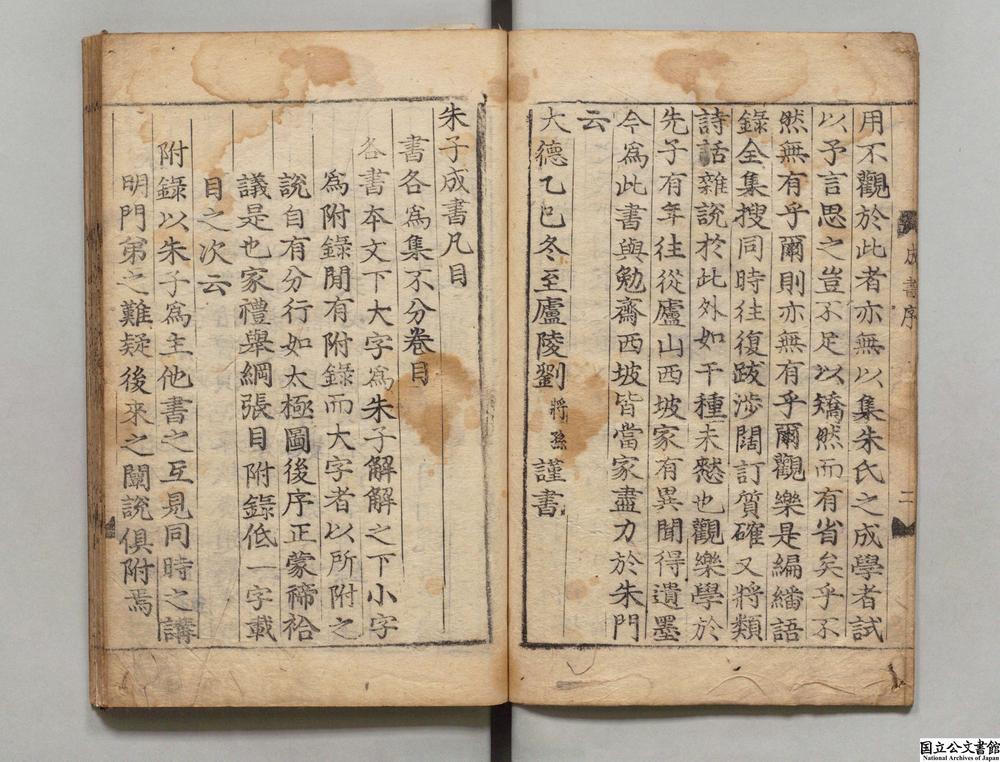 用不觀於此者亦無以集朱氏之成學者試
以予言思之豈不足以矯然而有省矣乎不
然無有乎爾則亦無有乎爾觀樂是編繙語
錄全集搜同時往復跋涉闊訂質確又將類
詩話雜說於此外如干種未憗也觀樂學於
先子有年往從廬山西坡家有異聞得遺墨
今爲此書與勉齋西坡皆當家盡力於朱門
云
大德乙巳冬至廬陵劉將孫謹書
成書序
二
朱子成書凡目
書各爲集不分卷目
各書本文下大字爲朱子解解之下小字
爲附錄閒有附錄而大字者以所附之
說自有分行如太極圖後序正蒙禘祫
議是也家禮舉綱張目附錄低一字載
目之次云
附錄以朱子爲主他書之互見同時之講
明門弟之難疑後來之闡說俱附焉
国立公文書館
National Archives of Japan